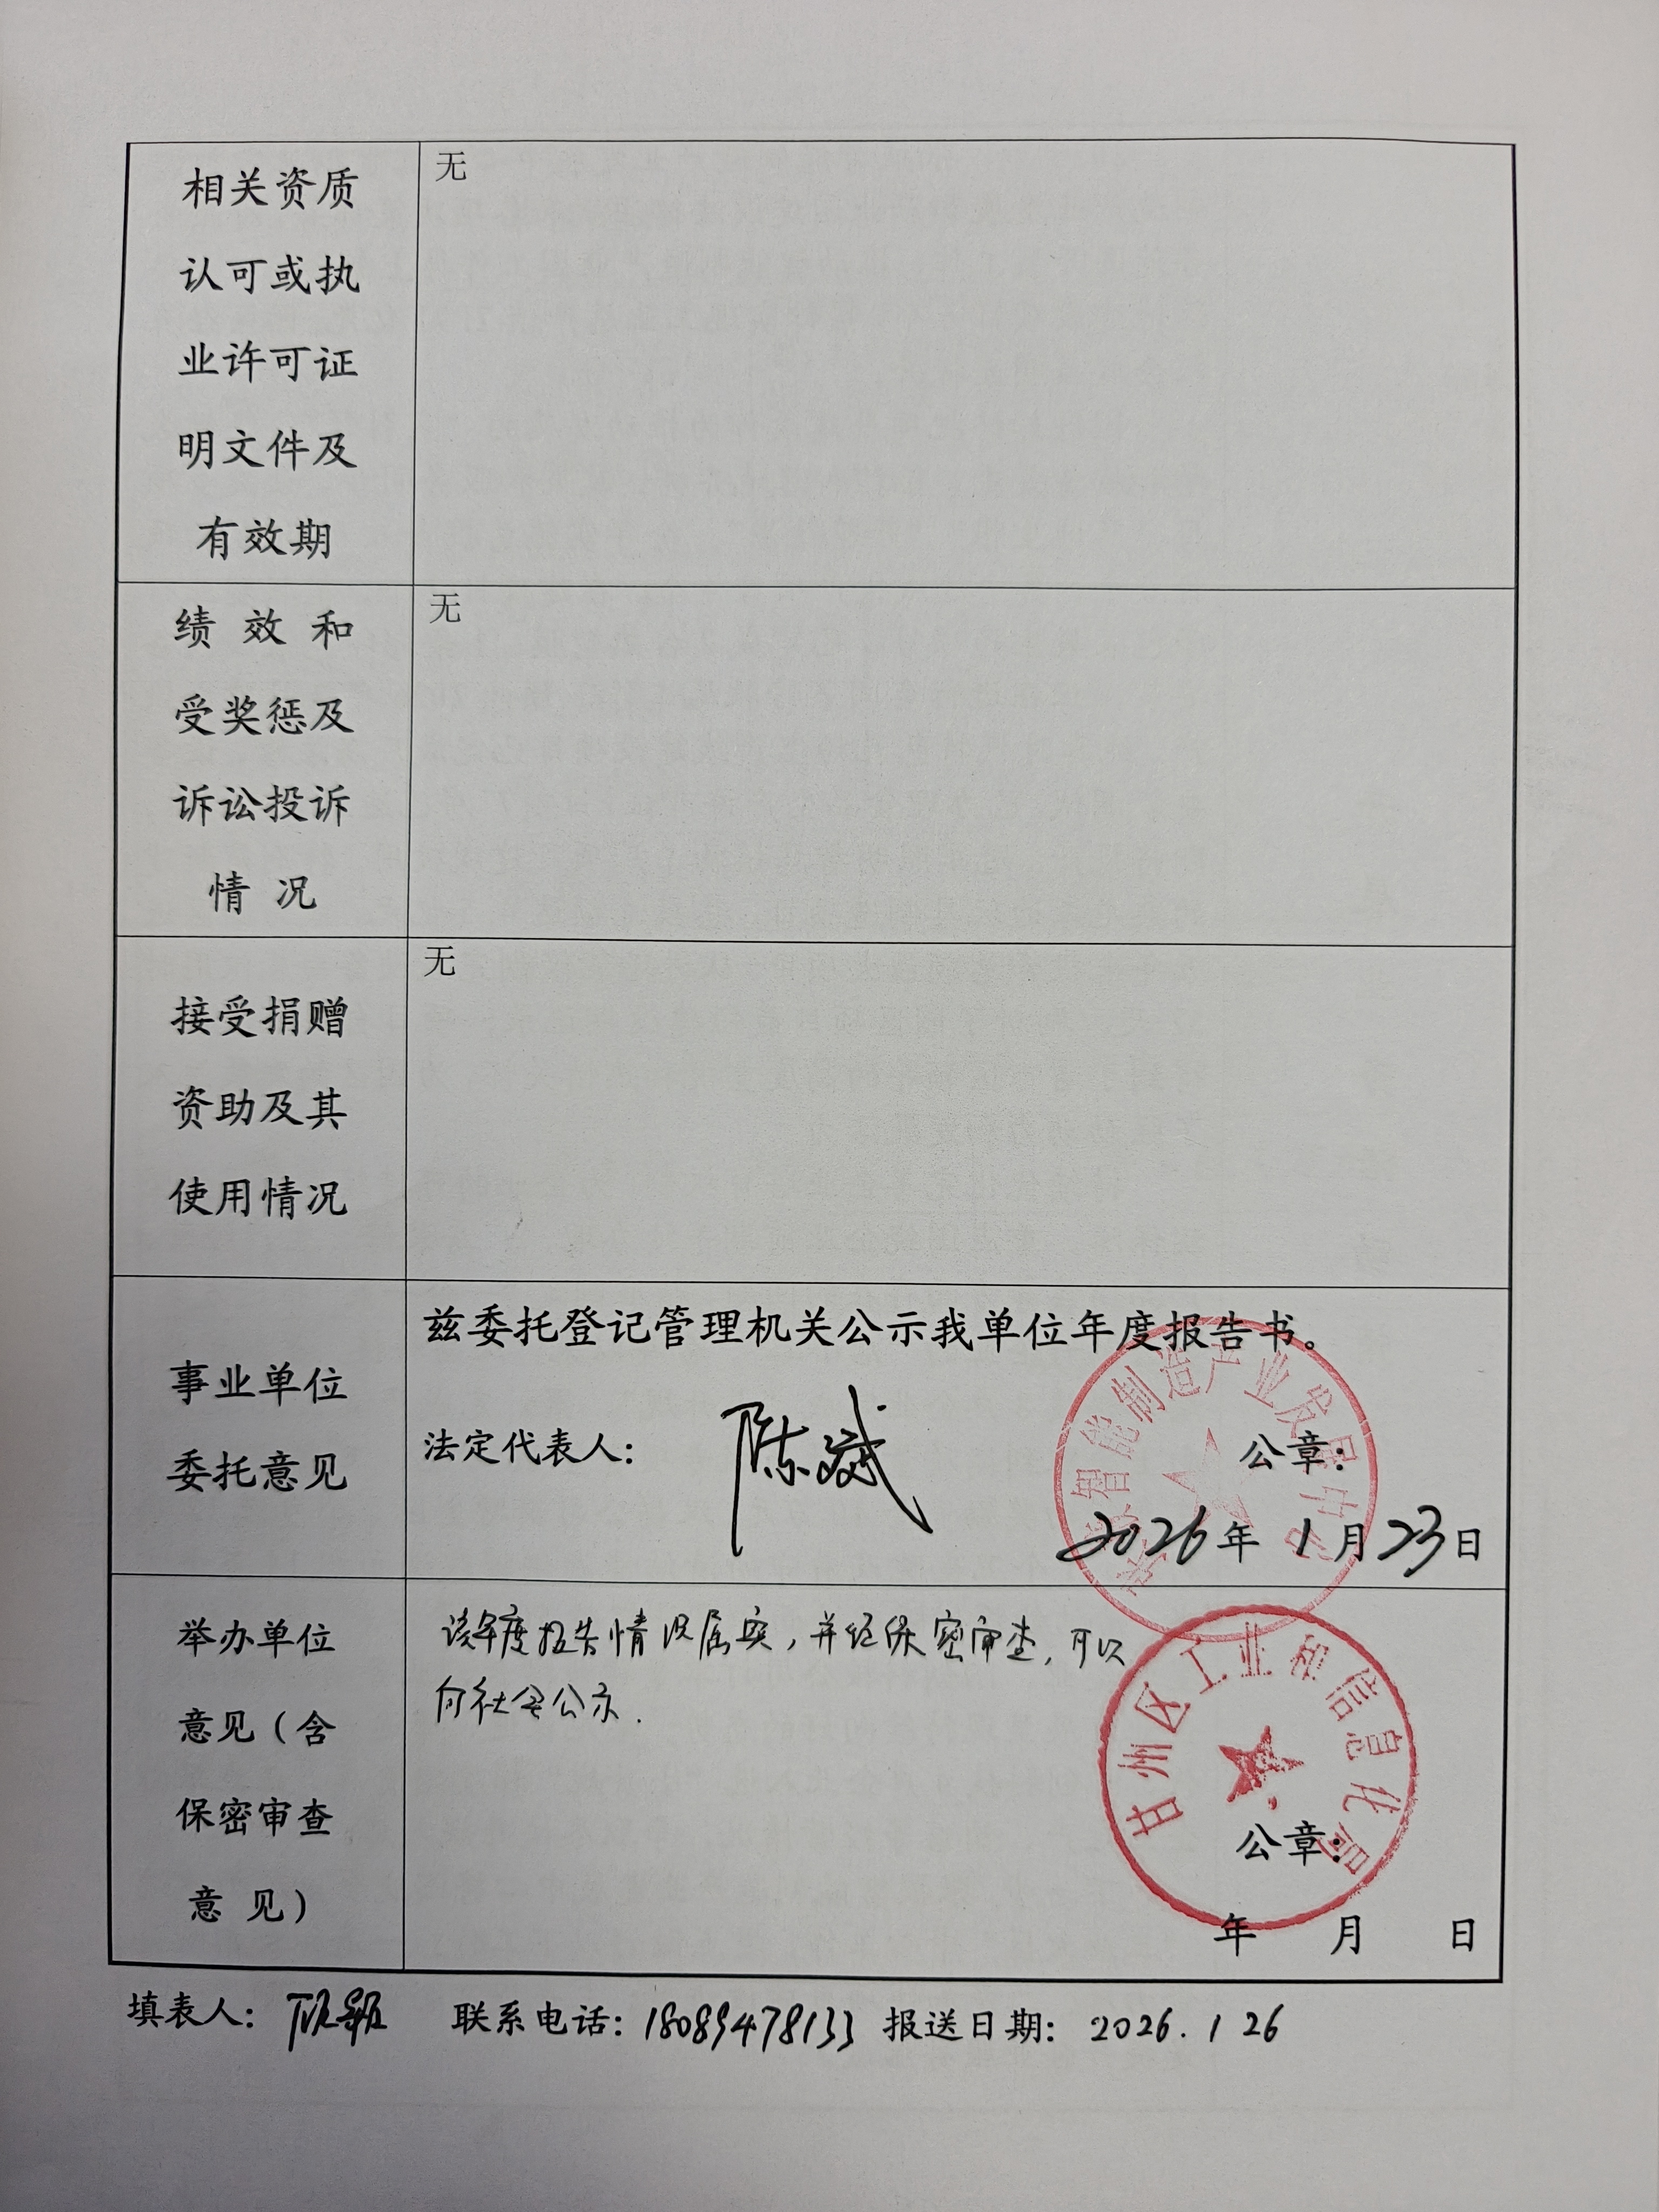 相关资质
认可或执
业许可证
明文件及
有效期
无
绩 效 和
受奖惩及
诉讼投诉
情 况
无
接受捐赠
资助及其
使用情况
无
事业单位
委托意见
兹委托登记管理机关公示我单位年度报告书。
法定代表人：陈斌
公章：
2026年 1月23日
智能制造产业发展中心
举办单位
意见（含
保密审查
意 见）
该年度报告情况属实，并经保密审查，可以
向社会公示.
甘州区工业和信息化局
公章：
年 月 日
填表人： 联系电话：18089478133 报送日期：2026.1 26